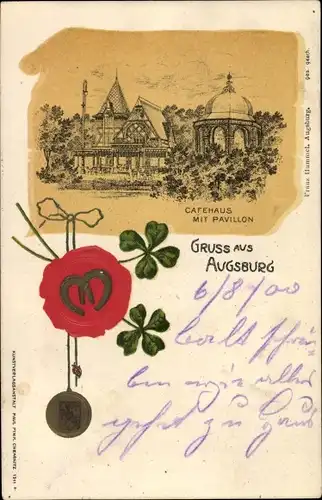 CAFEHAUS
MIT PAVILLON
GRUSS AUS
AUGSBURG
6/8/00
bald
alles
geht zu
Franz Hummel, Augsburg. ges. gesch.
KUNSTVERLAGSANSTALT PAUL FINK, CHEMNITZ